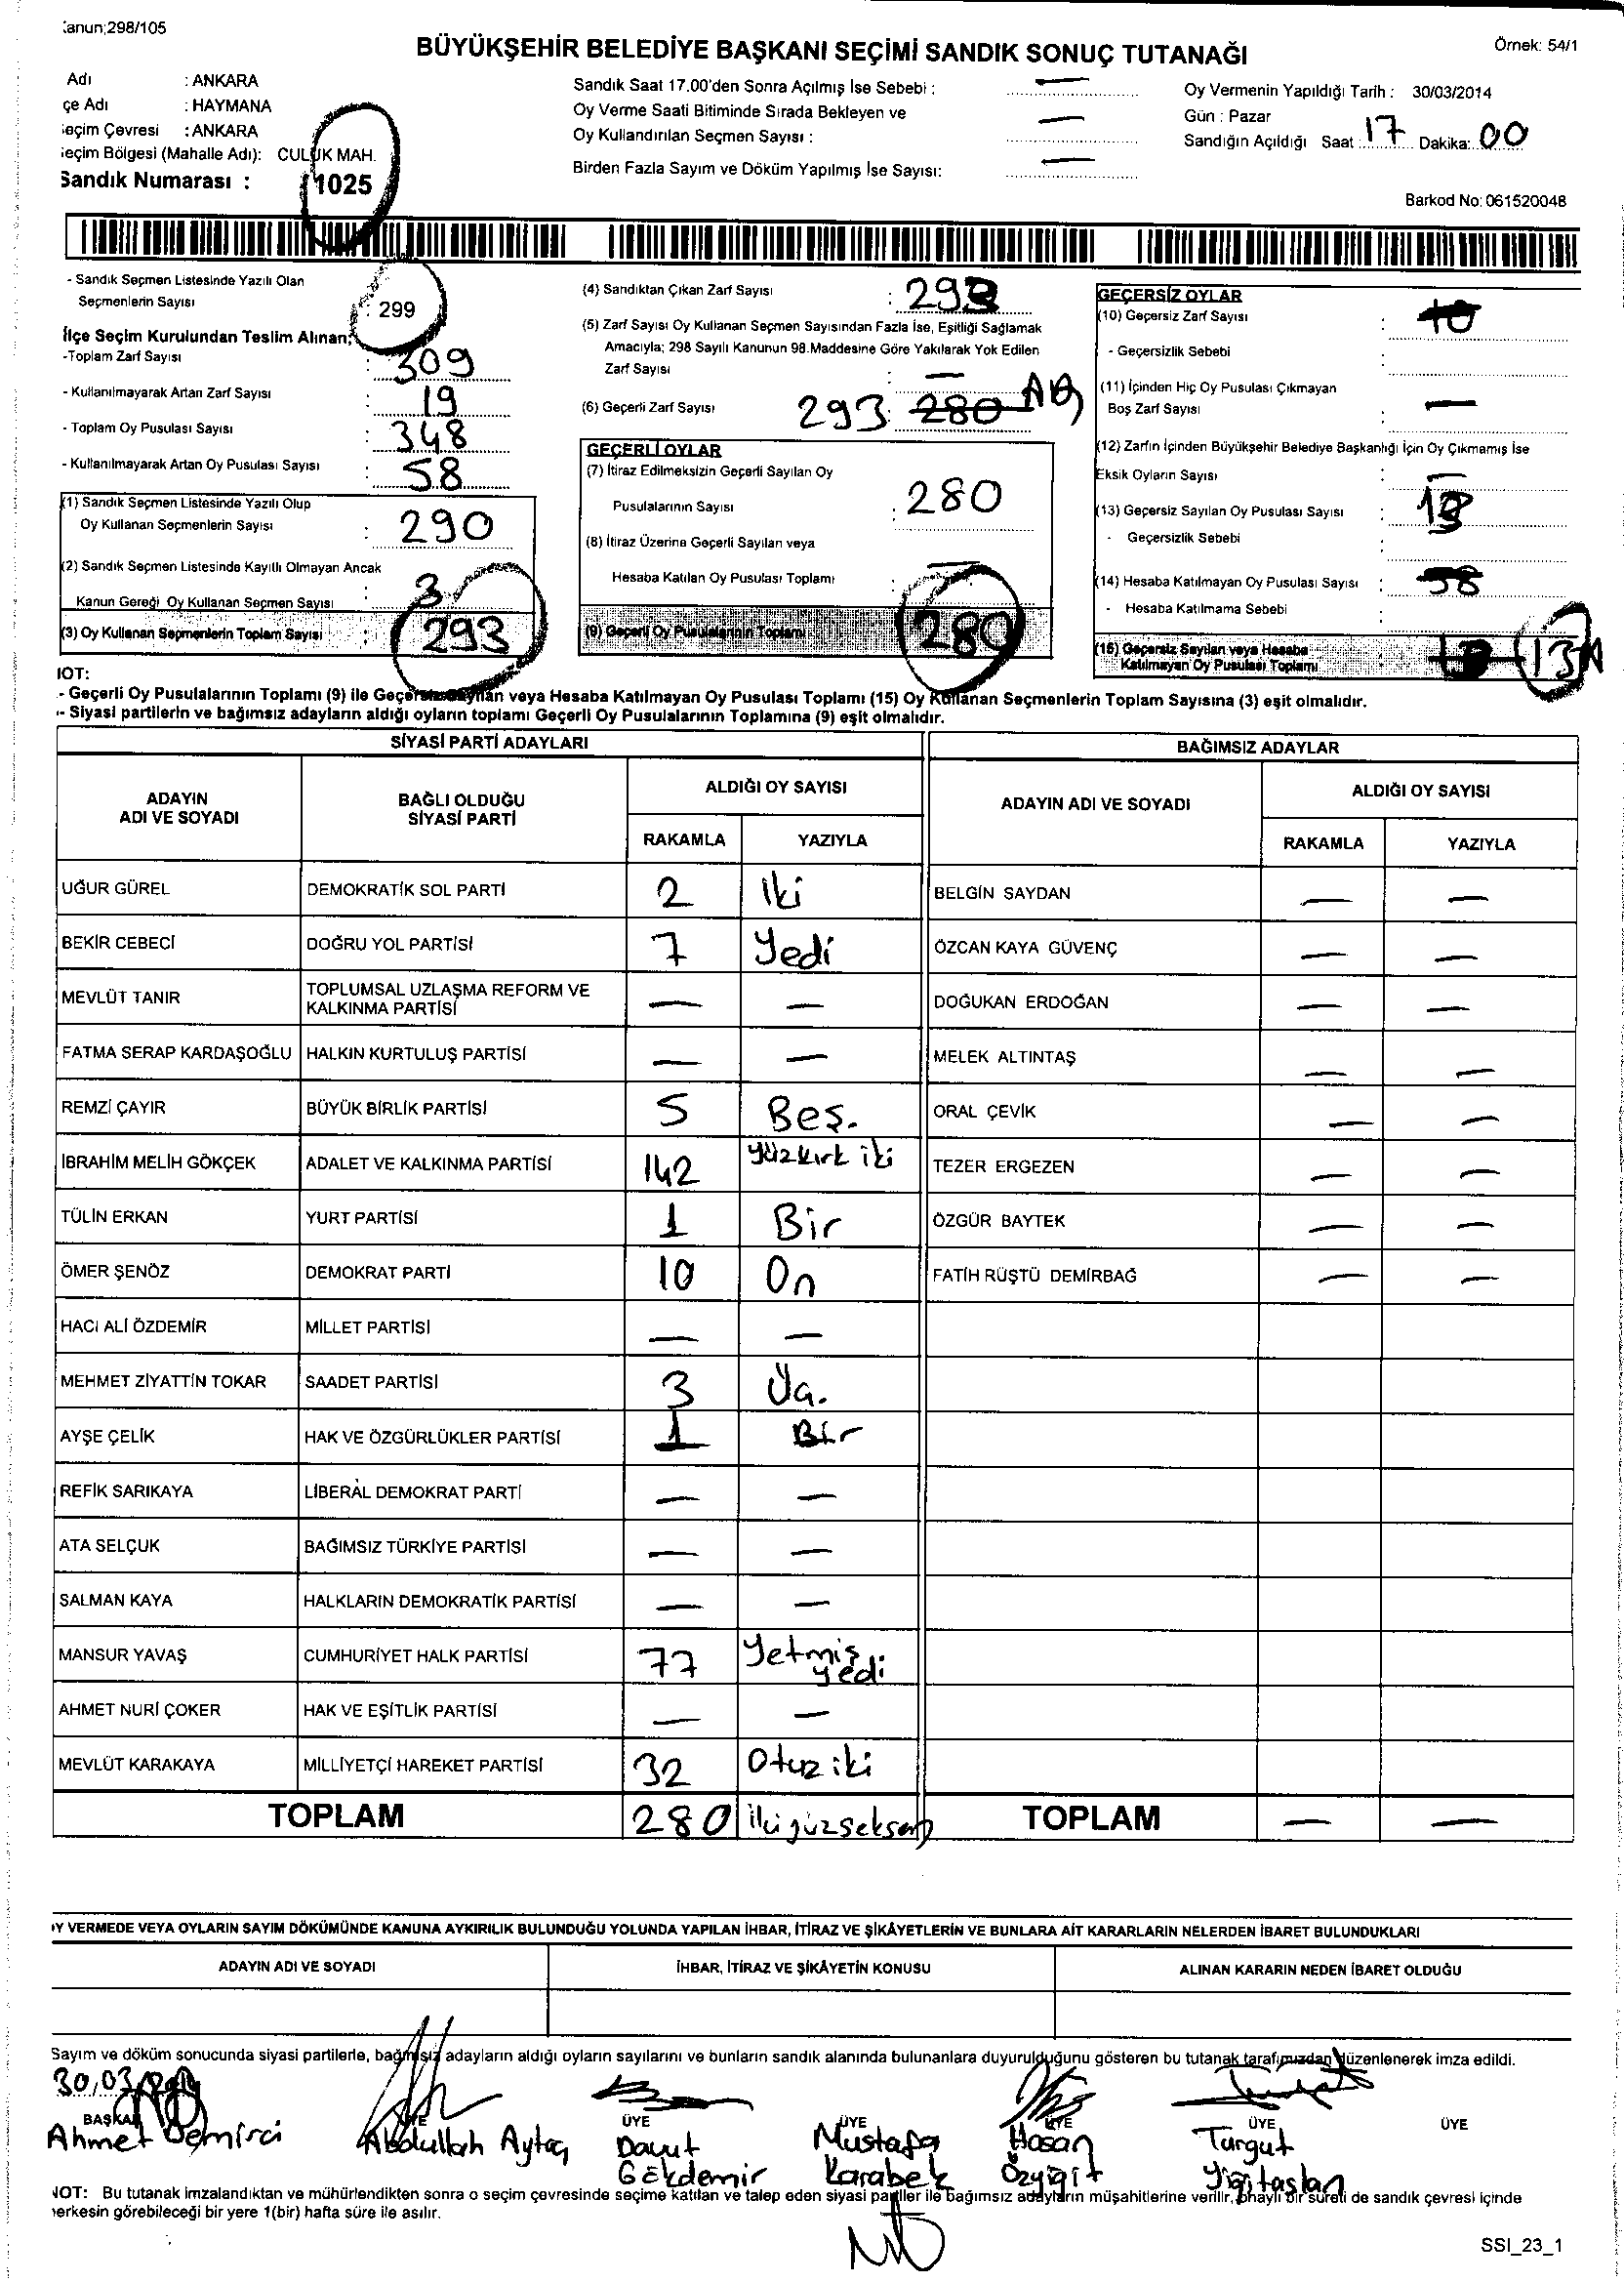 Kanun;298/105
Örnek: 54/1
BÜYÜKŞEHİR BELEDİYE BAŞKANI SEÇİMİ SANDIK SONUÇ TUTANAĞI
Adı : ANKARA
çe Adı : HAYMANA
eçim Çevresi : ANKARA
eçim Bölgesi (Mahalle Adı): CULUK MAH.
Sandık Numarası : 1025
Sandık Saat 17.00'den Sonra Açılmış İse Sebebi : —
Oy Verme Saati Bitiminde Sırada Bekleyen ve
Oy Kullandırılan Seçmen Sayısı : —
Birden Fazla Sayım ve Döküm Yapılmış İse Sayısı: —
Oy Vermenin Yapıldığı Tarih : 30/03/2014
Gün : Pazar
Sandığın Açıldığı Saat : 17 Dakika: 00
Barkod No: 061520048
- Sandık Seçmen Listesinde Yazılı Olan
Seçmenlerin Sayısı : 299
İlçe Seçim Kurulundan Teslim Alınan;
-Toplam Zarf Sayısı : 309
- Kullanılmayarak Artan Zarf Sayısı : 19
- Toplam Oy Pusulası Sayısı : 348
- Kullanılmayarak Artan Oy Pusulası Sayısı : 58
(1) Sandık Seçmen Listesinde Yazılı Olup
Oy Kullanan Seçmenlerin Sayısı : 290
(2) Sandık Seçmen Listesinde Kayıtlı Olmayan Ancak
Kanun Gereği Oy Kullanan Seçmen Sayısı : 3
(3) Oy Kullanan Seçmenlerin Toplam Sayısı : 293
(4) Sandıktan Çıkan Zarf Sayısı : 293
(5) Zarf Sayısı Oy Kullanan Seçmen Sayısından Fazla İse, Eşitliği Sağlamak
Amacıyla; 298 Sayılı Kanunun 98.Maddesine Göre Yakılarak Yok Edilen
Zarf Sayısı : —
(6) Geçerli Zarf Sayısı 293 : 280
GEÇERLİ OYLAR
(7) İtiraz Edilmeksizin Geçerli Sayılan Oy
Pusulalarının Sayısı : 280
(8) İtiraz Üzerine Geçerli Sayılan veya
Hesaba Katılan Oy Pusulası Toplamı : —
(9) Geçerli Oy Pusulalarının Toplamı 280
GEÇERSİZ OYLAR
(10) Geçersiz Zarf Sayısı :
- Geçersizlik Sebebi :
(11) İçinden Hiç Oy Pusulası Çıkmayan
Boş Zarf Sayısı : —
(12) Zarfın İçinden Büyükşehir Belediye Başkanlığı İçin Oy Çıkmamış İse
Eksik Oyların Sayısı : —
(13) Geçersiz Sayılan Oy Pusulası Sayısı :
- Geçersizlik Sebebi :
(14) Hesaba Katılmayan Oy Pusulası Sayısı :
- Hesaba Katılmama Sebebi :
(15) Geçersiz Sayılan veya Hesaba
Katılmayan Oy Pusulası Toplamı 13
NOT:
- Geçerli Oy Pusulalarının Toplamı (9) ile Geçersiz Sayılan veya Hesaba Katılmayan Oy Pusulası Toplamı (15) Oy Kullanan Seçmenlerin Toplam Sayısına (3) eşit olmalıdır.
- Siyasi partilerin ve bağımsız adayların aldığı oyların toplamı Geçerli Oy Pusulalarının Toplamına (9) eşit olmalıdır.
SİYASİ PARTİ ADAYLARI BAĞIMSIZ ADAYLAR
ADAYIN ADI VE SOYADI BAĞLI OLDUĞU SİYASİ PARTİ ALDIĞI OY SAYISI ADAYIN ADI VE SOYADI ALDIĞI OY SAYISI
RAKAMLA YAZIYLA RAKAMLA YAZIYLA
UĞUR GÜREL DEMOKRATİK SOL PARTİ 2 İki BELGİN SAYDAN — —
BEKİR CEBECİ DOĞRU YOL PARTİSİ 7 Yedi ÖZCAN KAYA GÜVENÇ — —
MEVLÜT TANIR TOPLUMSAL UZLAŞMA REFORM VE KALKINMA PARTİSİ — — DOĞUKAN ERDOĞAN — —
FATMA SERAP KARDAŞOĞLU HALKIN KURTULUŞ PARTİSİ — — MELEK ALTINTAŞ — —
REMZİ ÇAYIR BÜYÜK BİRLİK PARTİSİ 5 Beş. ORAL ÇEVİK — —
İBRAHİM MELİH GÖKÇEK ADALET VE KALKINMA PARTİSİ 142 Yüzkırk iki TEZER ERGEZEN — —
TÜLİN ERKAN YURT PARTİSİ 1 Bir ÖZGÜR BAYTEK — —
ÖMER ŞENÖZ DEMOKRAT PARTİ 10 On FATİH RÜŞTÜ DEMİRBAĞ — —
HACI ALİ ÖZDEMİR MİLLET PARTİSİ — —
MEHMET ZİYATTİN TOKAR SAADET PARTİSİ 3 Üç.
AYŞE ÇELİK HAK VE ÖZGÜRLÜKLER PARTİSİ 1 Bir
REFİK SARIKAYA LİBERAL DEMOKRAT PARTİ — —
ATA SELÇUK BAĞIMSIZ TÜRKİYE PARTİSİ — —
SALMAN KAYA HALKLARIN DEMOKRATİK PARTİSİ — —
MANSUR YAVAŞ CUMHURİYET HALK PARTİSİ 77 Yetmiş yedi
AHMET NURİ ÇOKER HAK VE EŞİTLİK PARTİSİ — —
MEVLÜT KARAKAYA MİLLİYETÇİ HAREKET PARTİSİ 32 Otuz iki
TOPLAM 280 ikiyüzseksen TOPLAM — —
OY VERMEDE VEYA OYLARIN SAYIM DÖKÜMÜNDE KANUNA AYKIRILIK BULUNDUĞU YOLUNDA YAPILAN İHBAR, İTİRAZ VE ŞİKÂYETLERİN VE BUNLARA AİT KARARLARIN NELERDEN İBARET BULUNDUKLARI
ADAYIN ADI VE SOYADI İHBAR, İTİRAZ VE ŞİKÂYETİN KONUSU ALINAN KARARIN NEDEN İBARET OLDUĞU
Sayım ve döküm sonucunda siyasi partilerle, bağımsız adayların aldığı oyların sayılarını ve bunların sandık alanında bulunanlara duyurulduğunu gösteren bu tutanak tarafımızdan düzenlenerek imza edildi.
30,03,2014
BAŞKAN ÜYE ÜYE ÜYE ÜYE ÜYE ÜYE
Ahmet Demirci Abdullah Aytaç Davut Gökdemir Mustafa Karabek Hasan Özyiğit Turgut Yiğitaslan
NOT: Bu tutanak imzalandıktan ve mühürlendikten sonra o seçim çevresinde seçime katılan ve talep eden siyasi partiler ile bağımsız adayların müşahitlerine verilir, onaylı bir sureti de sandık çevresi içinde
herkesin görebileceği bir yere 1(bir) hafta süre ile asılır.
SSI_23_1